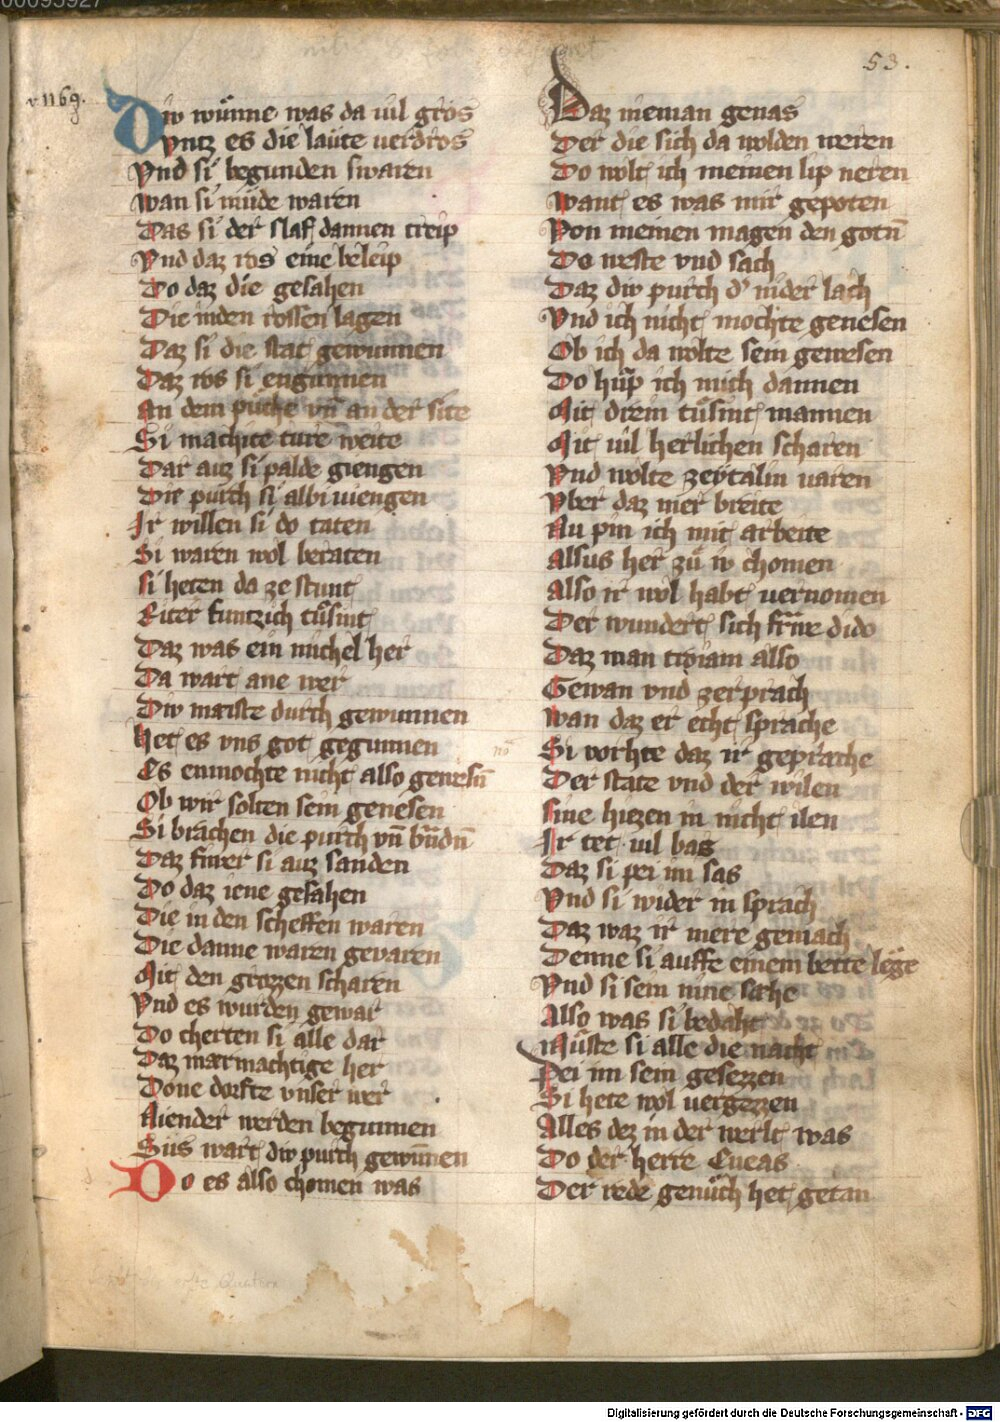 00095927
53.
v. 1169.
Div wünne was da vil gros
Vntz es die laüte verdros
Vnd si begunden swaren
Wan si müde waren
Das si der slaf dannen treip
Vnd daz ros eine beleip
Do daz die gesahen
Die inden rossen lagen
Daz si die stat gewunnen
Daz ros si engunnen
An dem puche vn̄ an der site
Si machite ture weite
Dar auz si palde giengen
Die purch si albi viengen
Ir willen si do taten
Si waren wol beraten
si heten da ze stunt
Riter funtzich tüsint
Daz was ein michel her
Da wart ane wer
Div maiste durch gewunnen
Het es vns got gegunnen
Es enmochte nicht also genesn̄
Ob wir solten sein genesen
Si brachen die purch vn̄ bn̄dn̄
Daz fiwer si auz sanden
Do daz iene gesahen
Die in den scheffen waren
Die danne waren gevaren
Mit den grozzen scharen
Vnd es wurden gewar
Do cherten si alle dar
Daz mærmachtige her
Done dorfte vnser wer
Niender werden begunnen
Sus wart div purch gewūnen
Do es also chomen was
Daz nieman genas
Der die sich da wolden weren
Do wolt ich meinen lip neren
Want es was mir gepoten
Von meinen magen den gotn̄
Do weste vnd sach
Daz div purch d' nider lach
Vnd ich nicht mochte genesen
Ob ich da wolte sein gewesen
Do hup ich mich dannen
Mit drein tüsint mannen
Mit vil herlichen scharen
Vnd wolte zeytalin varen
Vber daz mer breite
Nu pin ich mit arbeite
Alsus her zü iv chomen
Also ir wol habt vernomen
Der wundert sich frīwe dido
Daz man troiam also
Gewan vnd zerprach
Wan daz er echt sprache
Si vorchte daz ir geprache
Der state vnd der wilen
sine hiezen in nicht ilen
Ir tet vil bas
Daz si pei im sas
Vnd si wider in sprach
Daz waz ir mere gemach
Denne si auffe einem bette lege
Vnd si sein nine sæhe
Also was si bedaht
Müste si alle die nacht
Pei im sein gesezzen
Si hete wol vergezzen
Alles dez in der werlt was
Do der herre Eneas
Der rede genüch het getan
Digitalisierung gefördert durch die Deutsche Forschungsgemeinschaft - DFG